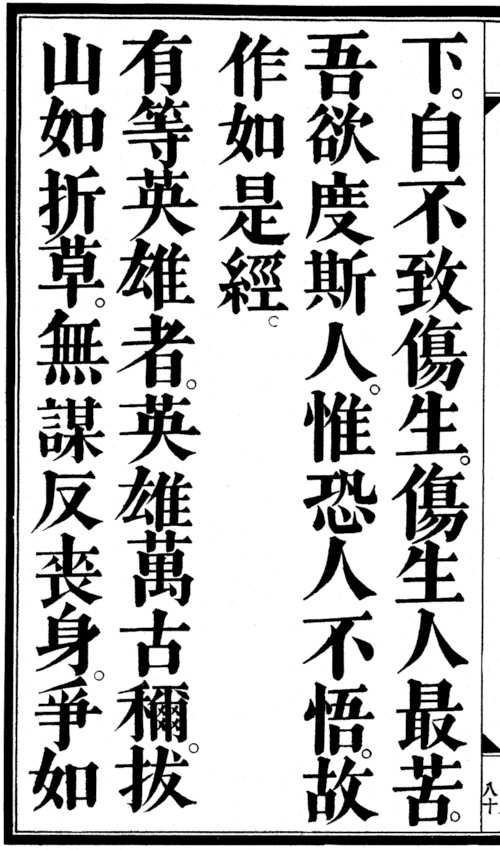 下。自不致傷生。傷生人最苦。
吾欲度斯人。惟恐人不悟。故
作如是經。
有等英雄者。英雄萬古穪。拔
山如折草。無謀反喪身。爭如
八十